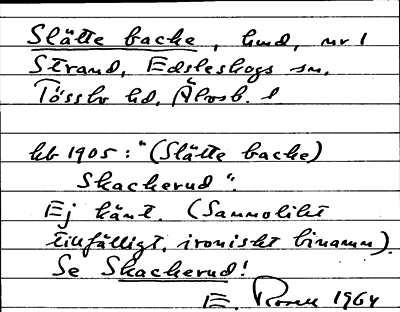 Slätte backe, hmd, nr 1
Strand, Edsleskogs sn,
Tössbo hd, Älvsb. l
hb 1905: "(Slätte backe)
Skackerud".
Ej känt. (Sannolikt
tillfälligt, ironiskt binamn).
Se Skackerud!
E. Rosell 1964